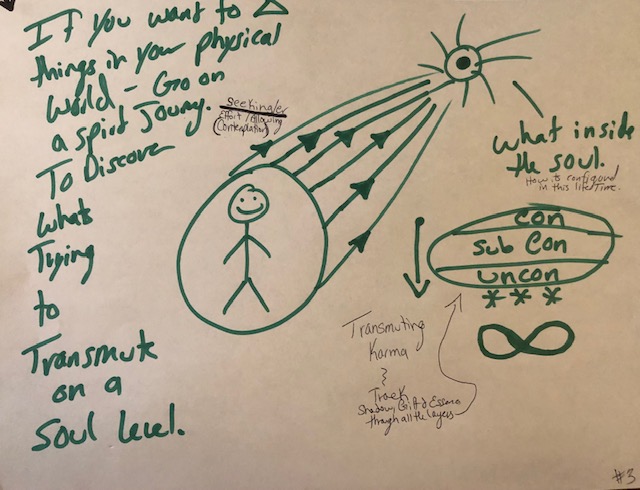 If you want to △
things in your physical
world - Go on
a spirit Journy.
To Discover
whats
Trying
to
Transmute
on a
Soul level.
Seeking/er
Effort/Allowing
(Contemplation)
what inside
the soul.
How its configured
in this life Time.
con
Sub Con
uncon
* * *
∞
Transmuting
Karma
Track
Shadow, Gift & Essence
through all the layers
#3